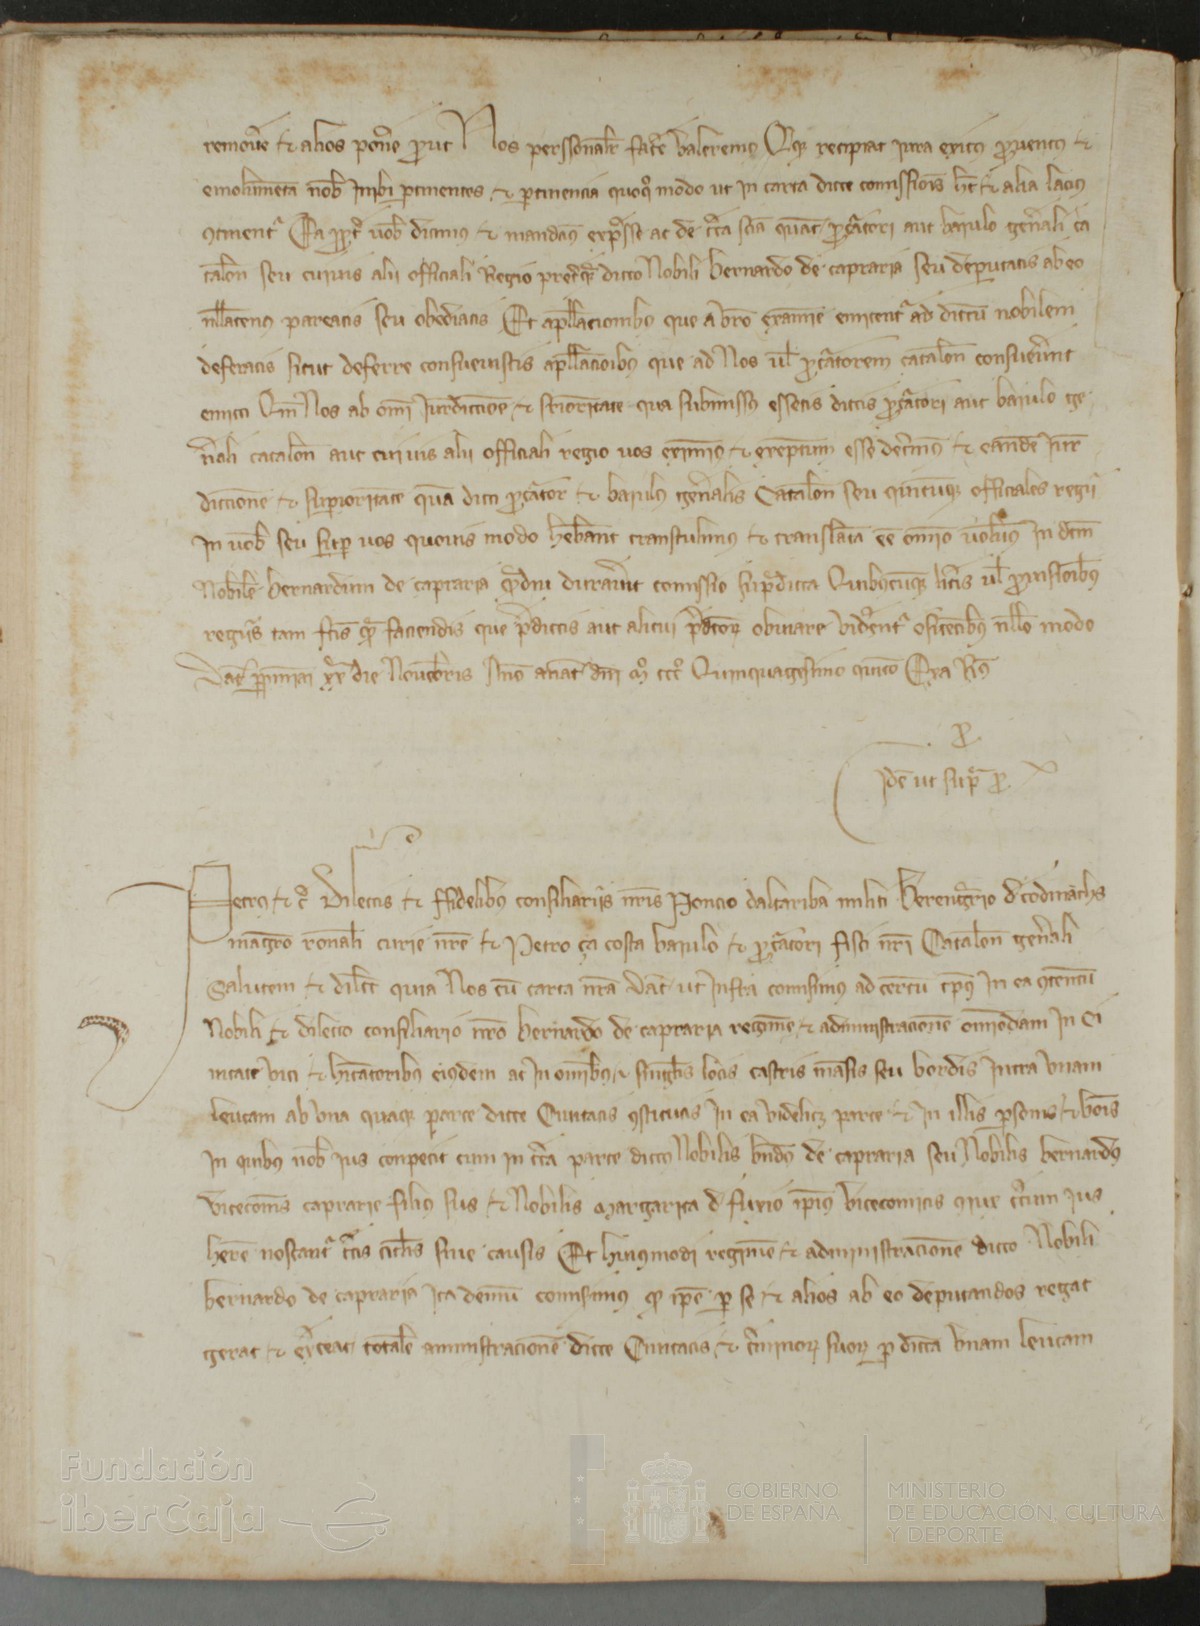 removere et alios ponere prout Nos personaliter facere valeremus Quodque recipiat iura exitus proventus et
emolumenta nobis Inibi pertinentes et pertinencia quoquo modo ut in carta dicte comissionis hec et alia lacius
continentur Ea propter vobis dicimus et mandamus expresse ac de certa sciencia quatenus procuratori aut baiulo generali
Catalonie seu cuivis alii officiali Regio preterquam dicto Nobili Bernardo de capraria seu deputatis ab eo
nullatenus pareatis seu obediatis Et apellacionibus que a vestro examine emitentur ad dictum nobilem
deferatis sicut deferre consuevistis apellacionibus que ad Nos vel procuratorem Catalonie consueverunt
emitti Cum Nos ab omni Iurediccione et superioritate qua submissus essetis dictis procuratori aut baiulo ge
nerali catalonie aut cuivis alii officiali regio vos eximimus et exemptum esse decernimus et eandem Iure
diccionem et superioritatem quam dicti procurator et baiulus generalis Catalonie seu quicumque officiales regii
In vobis seu super vos quovis modo habebant transtulimus et translatam esse omnino volumus In dictum
Nobilem Bernardum de capraria quamdiu duraverit comissio supradicta Quibuscumque literis vel provisionibus
regiis tam factis quam faciendis que predictis aut alicui predictorum obviare viderentur obsistentibus nullo modo
Datum perpiniani xx die Novembris Anno a nativitate domini M CCC Quinquagesimo quinto Exa Rus
p.
Idem ut supra p.
Petrus etc Dilectis et fidelibus consiliariis nostris Poncio daltariba militi Berengario de codinachs
magistro rationali curie nostre et Petro ça costa baiulo et procuratori fisci nostri Catalonie generali
Salutem et dilectionem quia Nos cum carta nostra data ut Infra comisimus ad certum tempus In ea contentum
Nobili et dilecto consiliario nostro Bernardo de capraria regimen et administracionem omnimodam In Ci
vitate vici et habitatoribus eiusdem ac In omnibus et singulis locis castris mansis seu bordis Intra unam
leucam ab una quaque parte dicte Civitatis constitutis In ea videlicet parte et In illis personis et bonis
In quibus nobis ius competit cum in certa parte dictus Nobilis Bernardus de capraria seu Nobilis bernardus
vicecomes caprarie filius suus et Nobilis Margarita de fuxio ipsius vicecomitis uxor certum Ius
habere noscantur certis titulis sive causis Et huiusmodi regimen et administracionem dicto Nobili
bernardo de capraria Ita demum comisimus quod ipse per se et alios ab eo deputandos regat
gerat et exerceat totalem aministracionem dicte Civitatis et terminorum suorum per dictam unam leucam
Fundación
iberCaja
GOBIERNO
DE ESPAÑA
MINISTERIO
DE EDUCACIÓN, CULTURA
Y DEPORTE